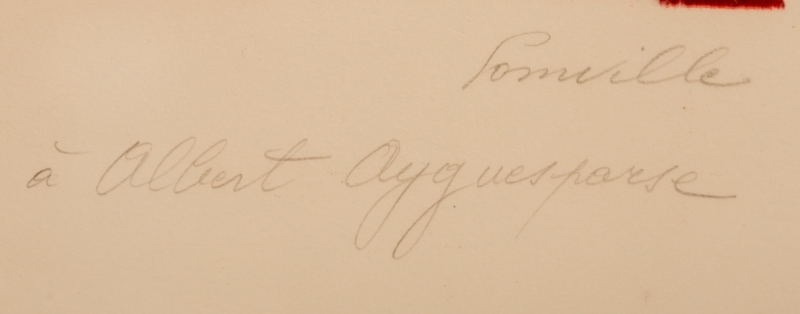 Somville
à Albert Ayguesparse